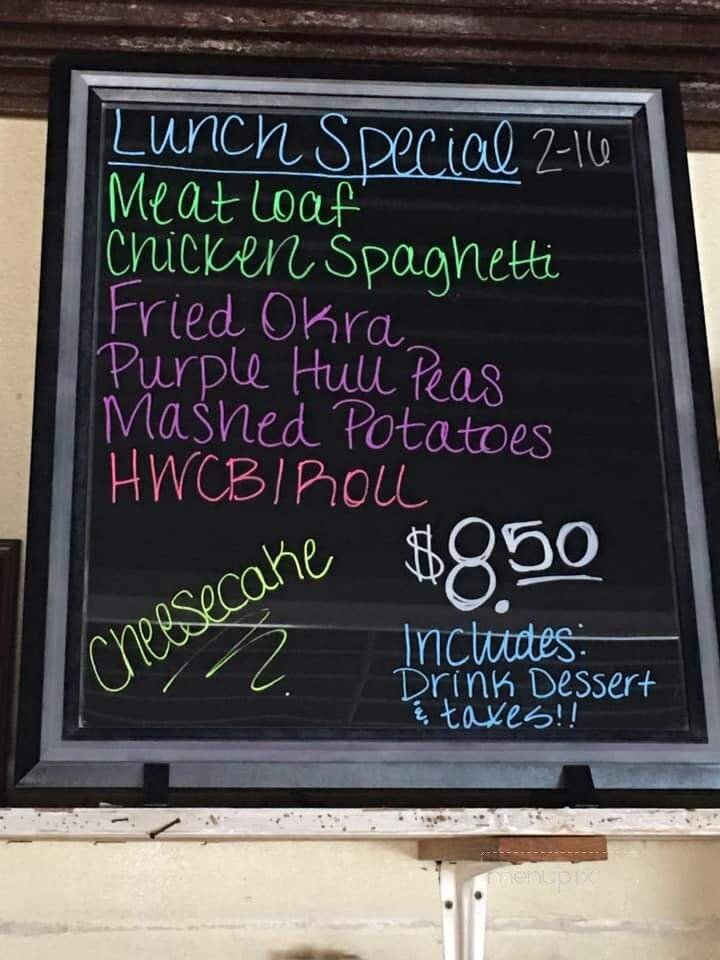 Lunch Special 2-16
Meat Loaf
Chicken Spaghetti
Fried Okra
Purple Hull Peas
Mashed Potatoes
HWCB/Roll
Cheesecake
$8.50
Includes:
Drink Dessert
& taxes!!
menupix